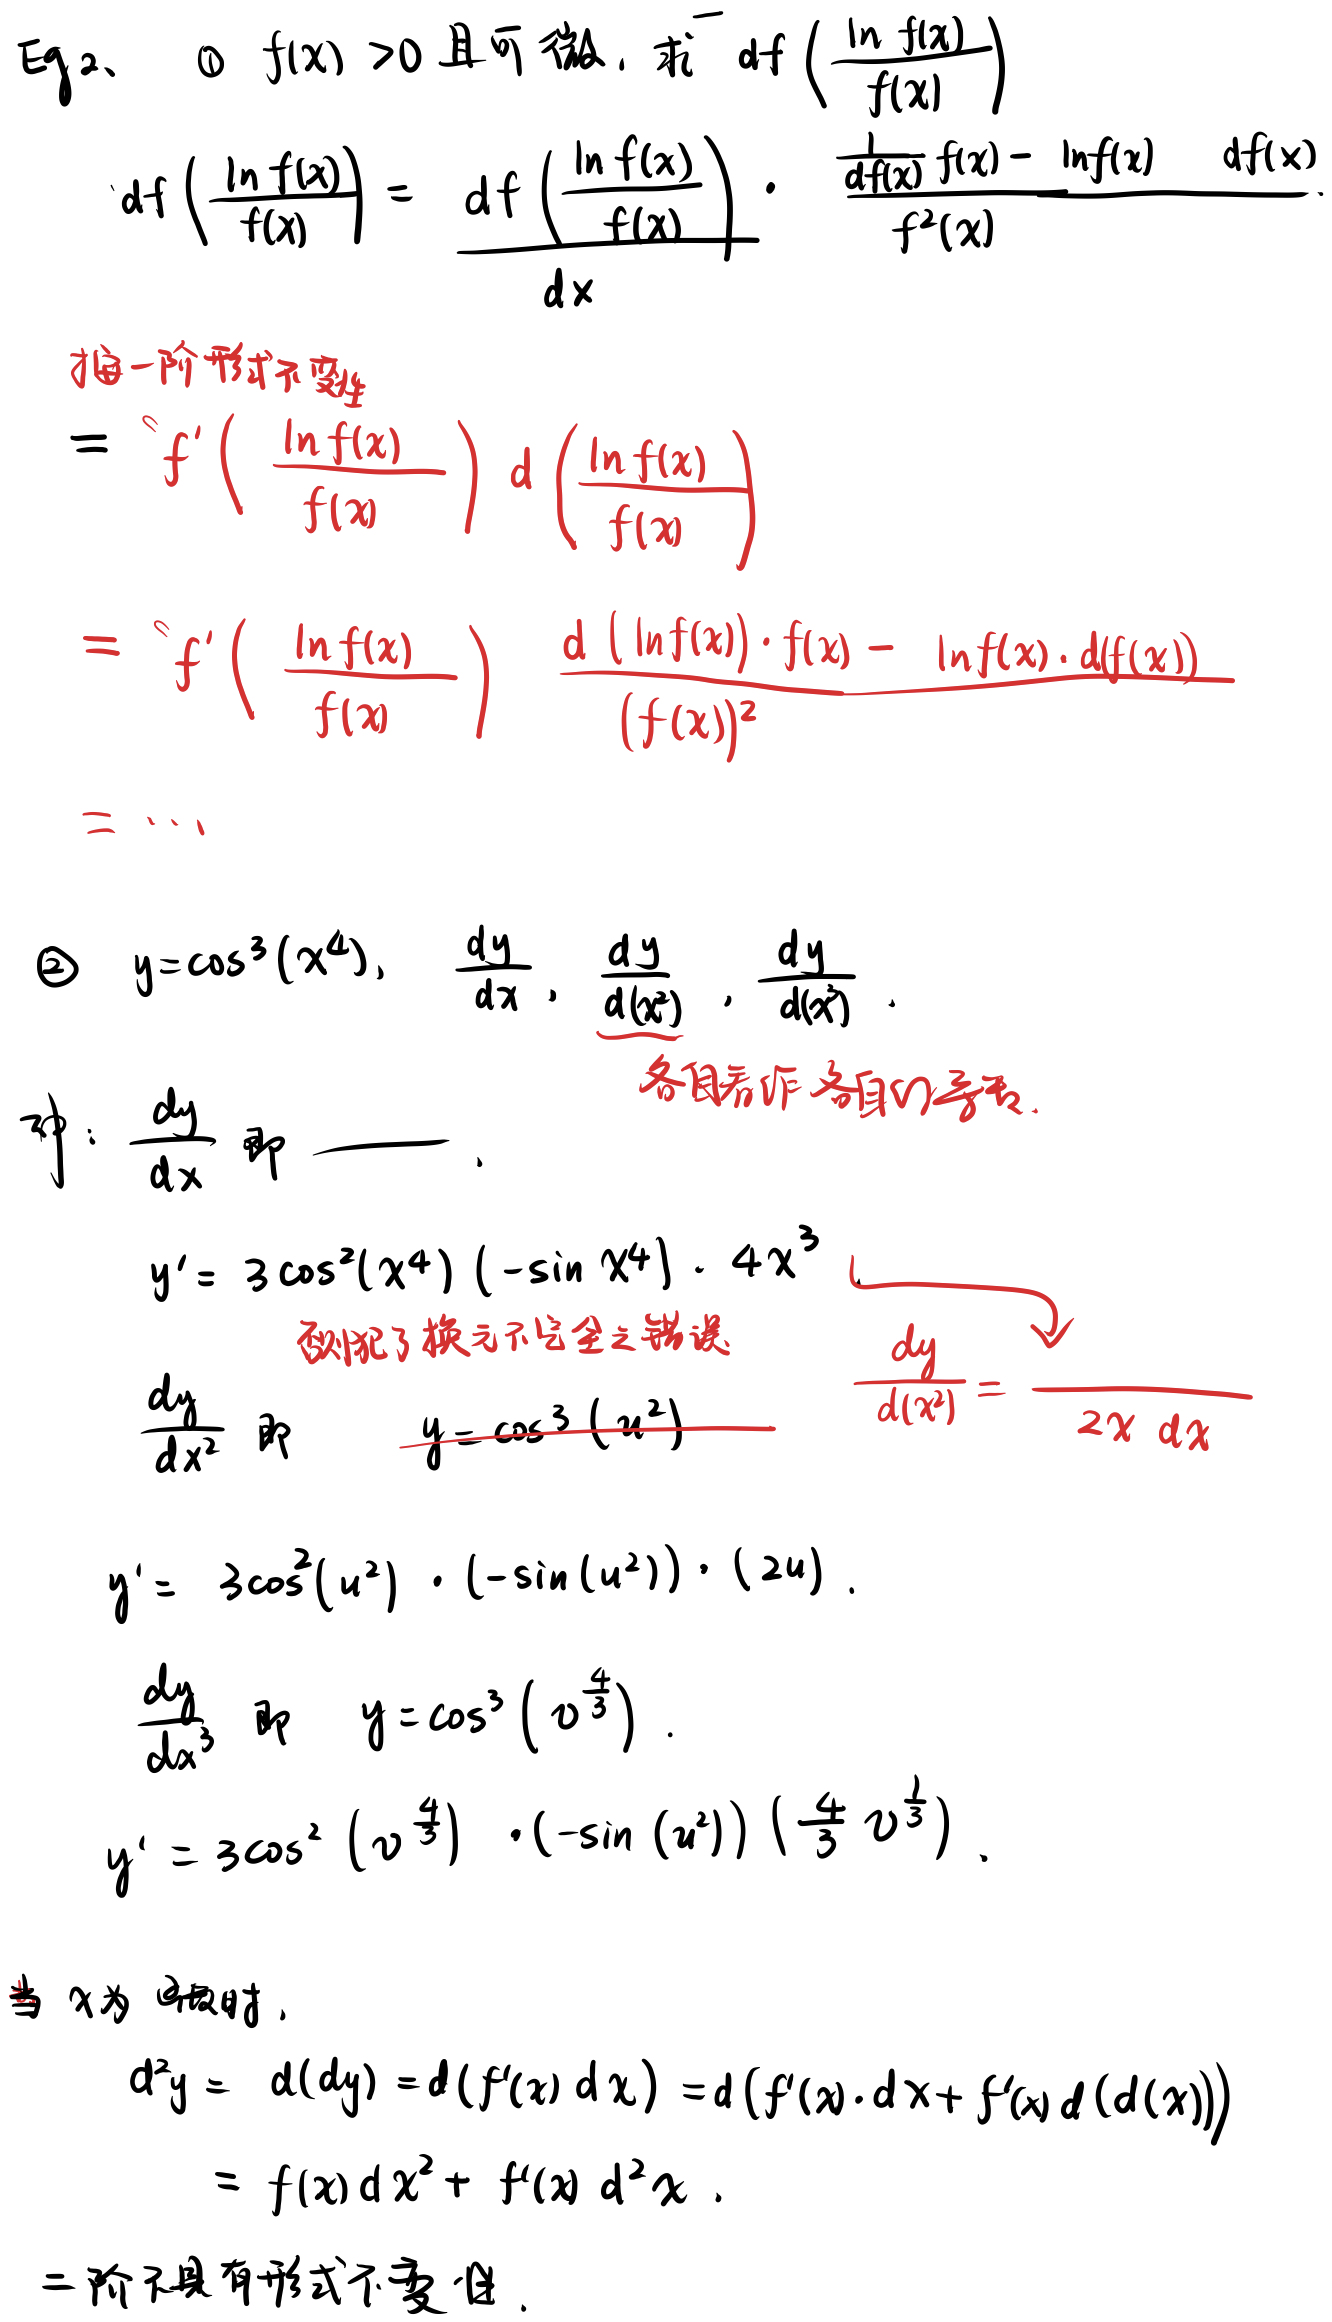 Eg2、 ① f(x) >0 且可微, 求 df(ln f(x)/f(x))
df(ln f(x)/f(x)) = df(ln f(x)/f(x))/dx · (1/df(x) f(x) - ln f(x) df(x))/f²(x).
一阶形式不变性
= f'(ln f(x)/f(x)) d(ln f(x)/f(x))
= f'(ln f(x)/f(x)) (d(ln f(x))·f(x) - ln f(x)·d(f(x)))/(f(x))²
= ...
② y=cos³(x⁴), dy/dx, dy/d(x²), dy/d(x³).
各自看作各自的导数.
dy/dx 即 —— .
y' = 3cos²(x⁴)(-sin x⁴)·4x³
否则犯了换元不完全之错误
dy/d(x²) = ——/2x dx
dy/dx² 即 y=cos³(u²)
y' = 3cos²(u²)·(-sin(u²))·(2u).
dy/dx³ 即 y=cos³(v^(4/3)).
y' = 3cos²(v^(4/3))·(-sin(u²))(4/3 v^(1/3)).
当 x为 时,
d²y = d(dy) = d(f'(x) dx) = d(f'(x)·dx + f'(x) d(d(x)))
= f(x)dx² + f'(x) d²x.
二阶不具有形式不变性.